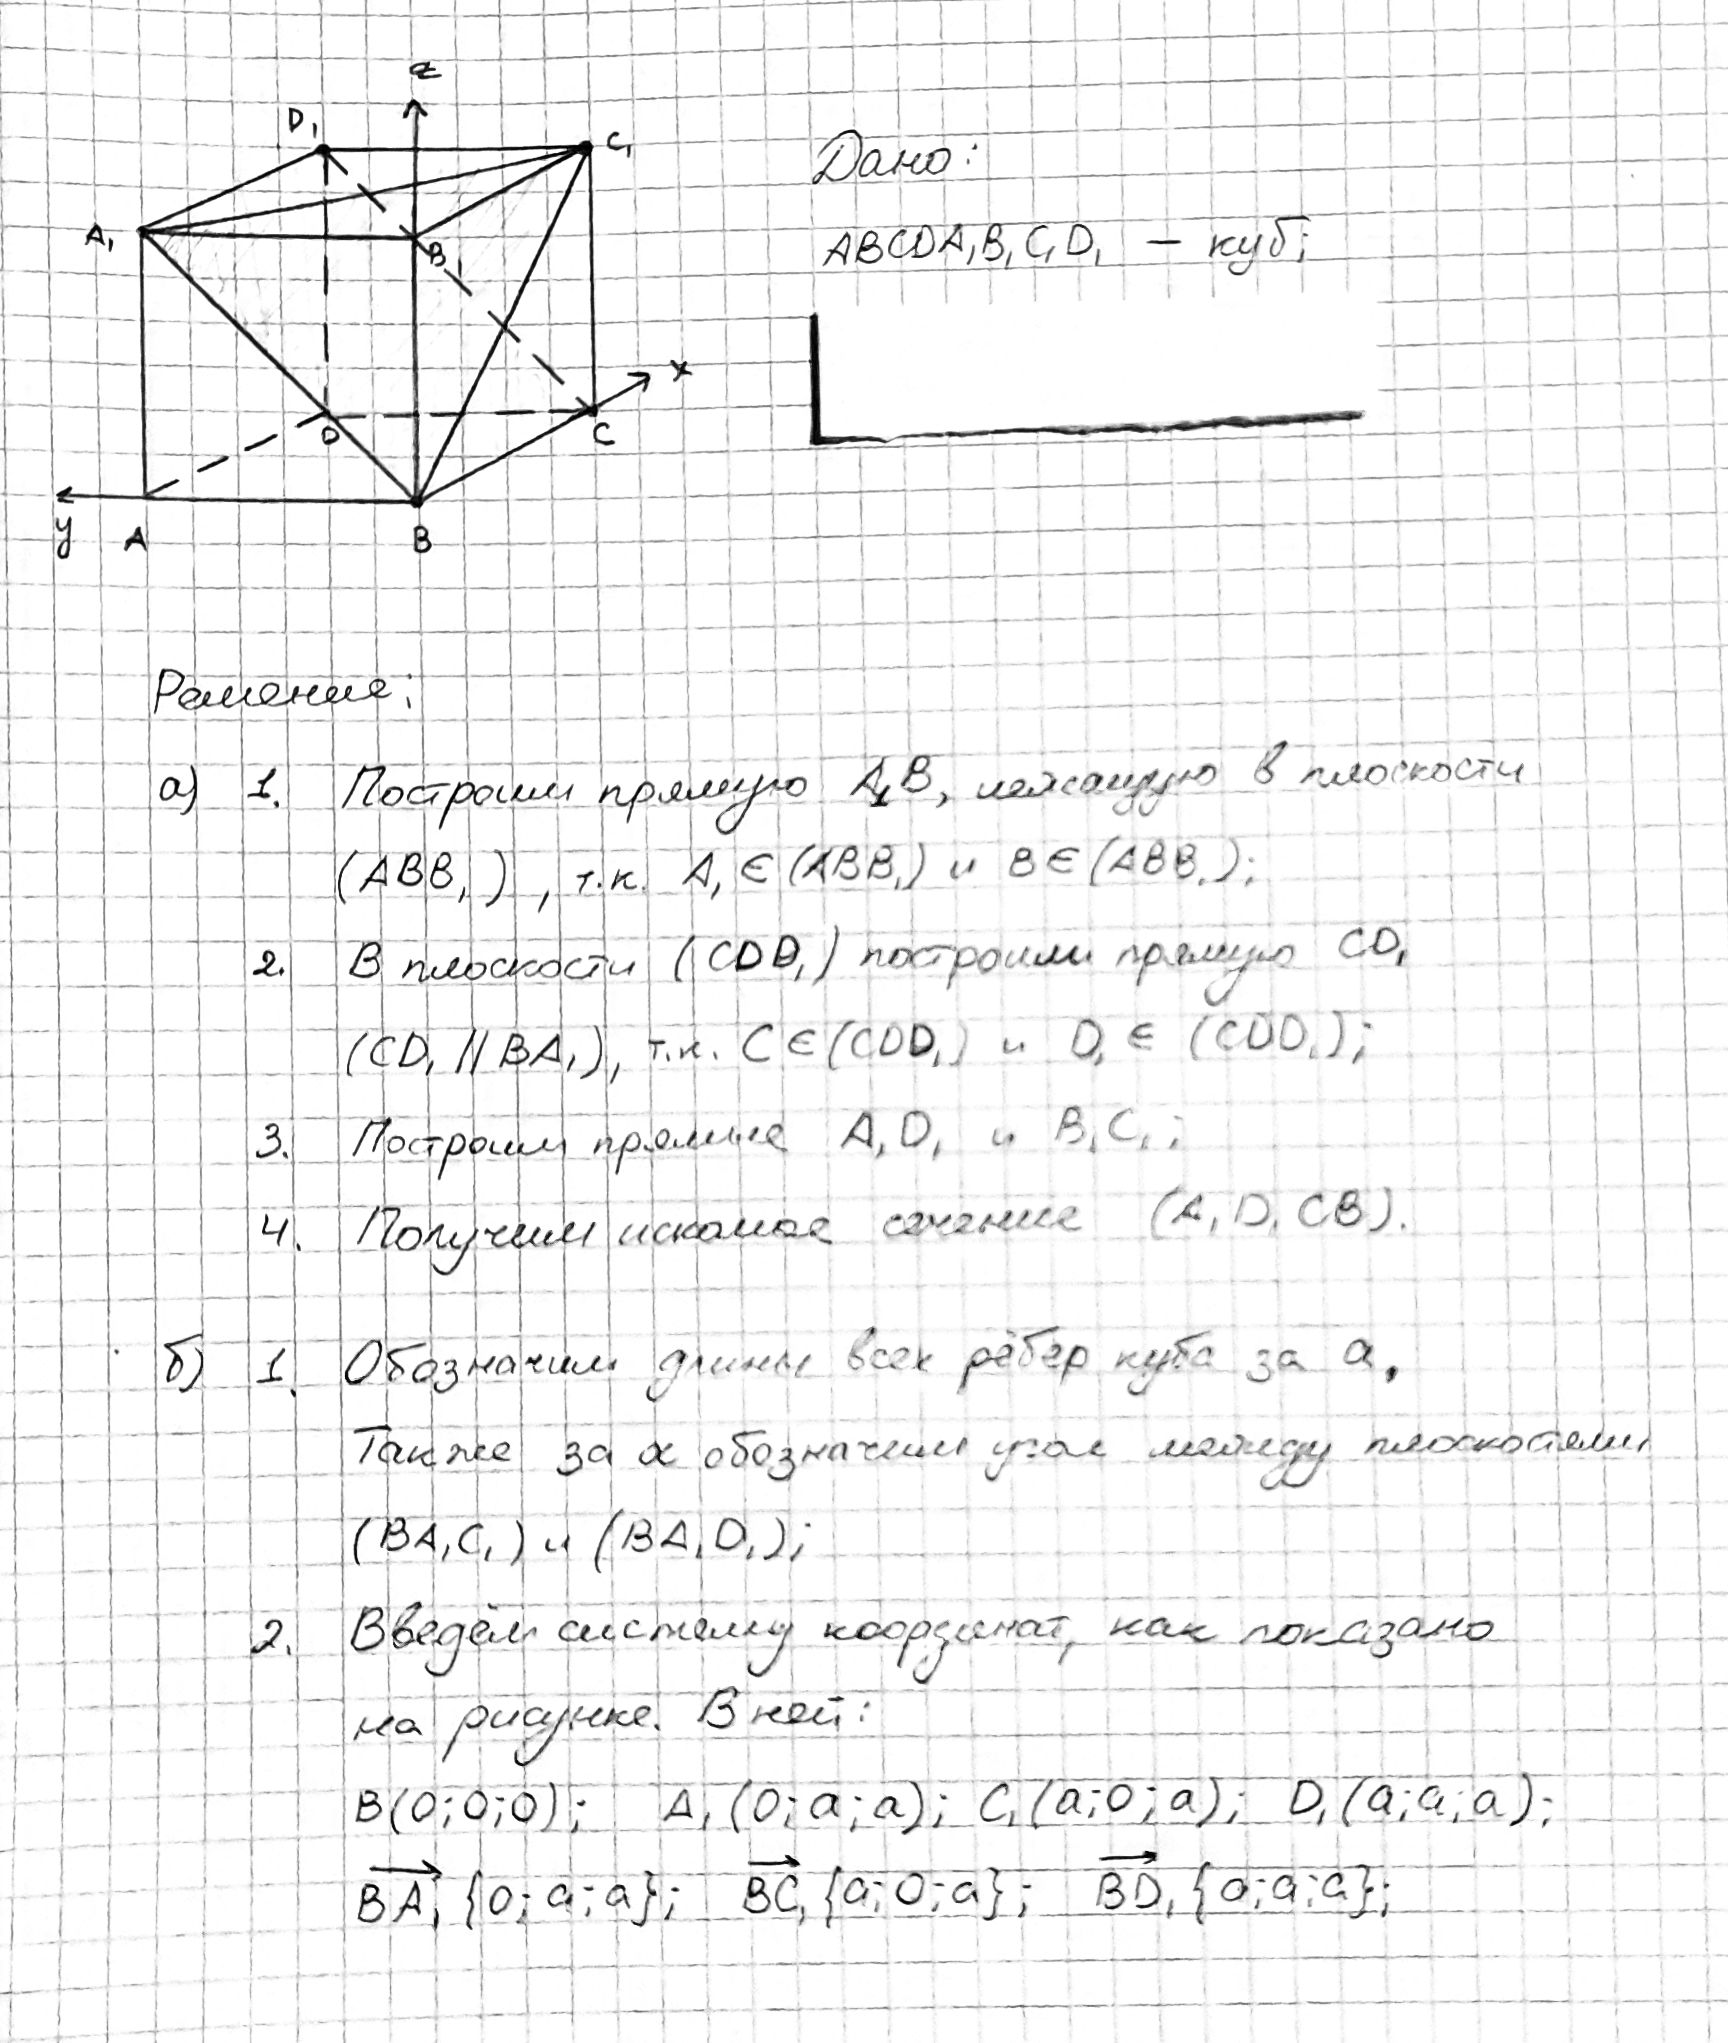 z
D₁
C₁
A₁
B₁
x
D
C
y
A
B
Дано:
ABCDA₁B₁C₁D₁ — куб;
Решение:
а) 1. Построим прямую A₁B, лежащую в плоскости
(ABB₁), т.к. A₁ ∈ (ABB₁) и B ∈ (ABB₁);
2. В плоскости (CDD₁) построим прямую CD₁
(CD₁ || BA₁), т.к. C ∈ (CDD₁) и D₁ ∈ (CDD₁);
3. Построим прямые A₁D₁ и B₁C₁;
4. Получим искомое сечение (A₁D₁CB).
б) 1. Обозначим длины всех рёбер куба за a,
Также за α обозначим угол между плоскостями
(BA₁C₁) и (BA₁D₁);
2. Введём систему координат, как показано
на рисунке. В ней:
B(0;0;0); A₁(0;a;a); C₁(a;0;a); D₁(a;a;a);
BA₁{0;a;a}; BC₁{a;0;a}; BD₁{a;a;a};